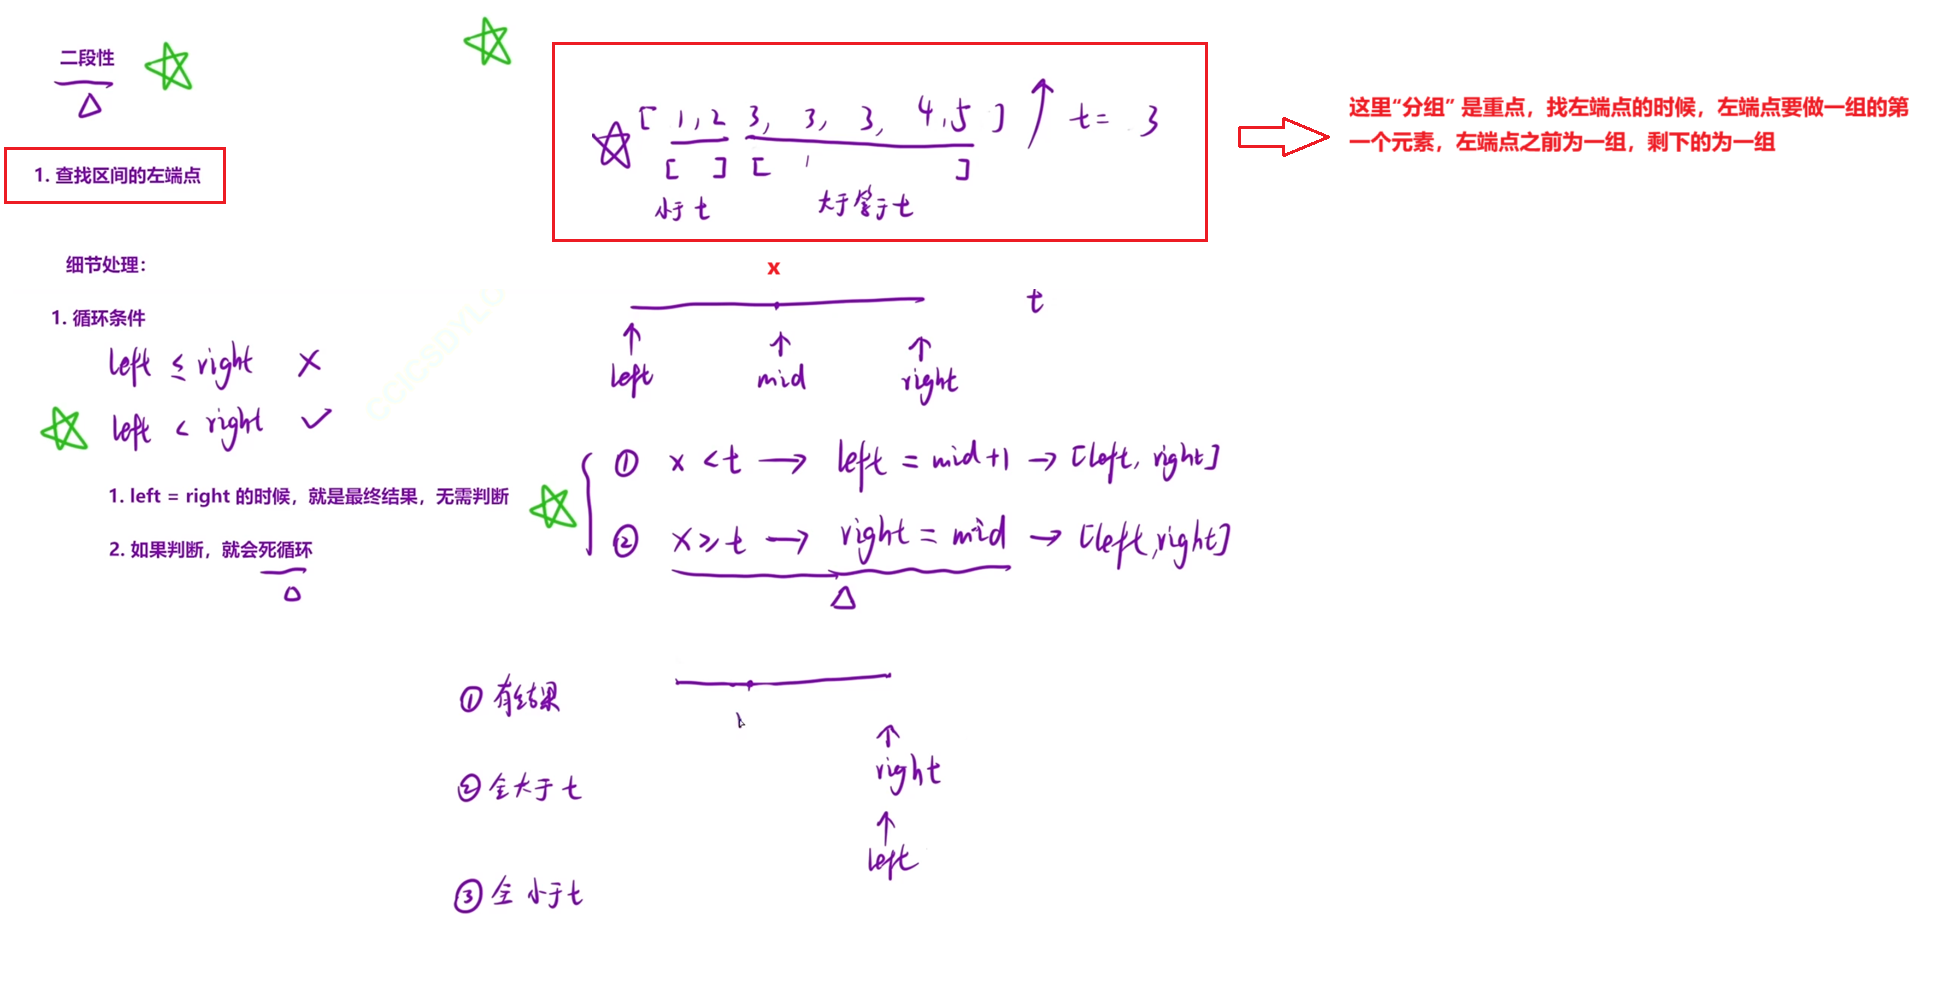 二段性
[ 1,2 3, 3, 3, 4,5 ] t= 3
[ ] [ ]
小于 t 大于等于 t
这里“分组” 是重点，找左端点的时候，左端点要做一组的第
一个元素，左端点之前为一组，剩下的为一组
1. 查找区间的左端点
细节处理：
1. 循环条件
left ≤ right ×
left < right ✓
1. left = right 的时候，就是最终结果，无需判断
2. 如果判断，就会死循环
x
t
left mid right
① x < t → left = mid+1 → [left, right]
② x ≥ t → right = mid → [left, right]
① 有结果
② 全大于 t
③ 全小于 t
right
left
CCICSDYLC